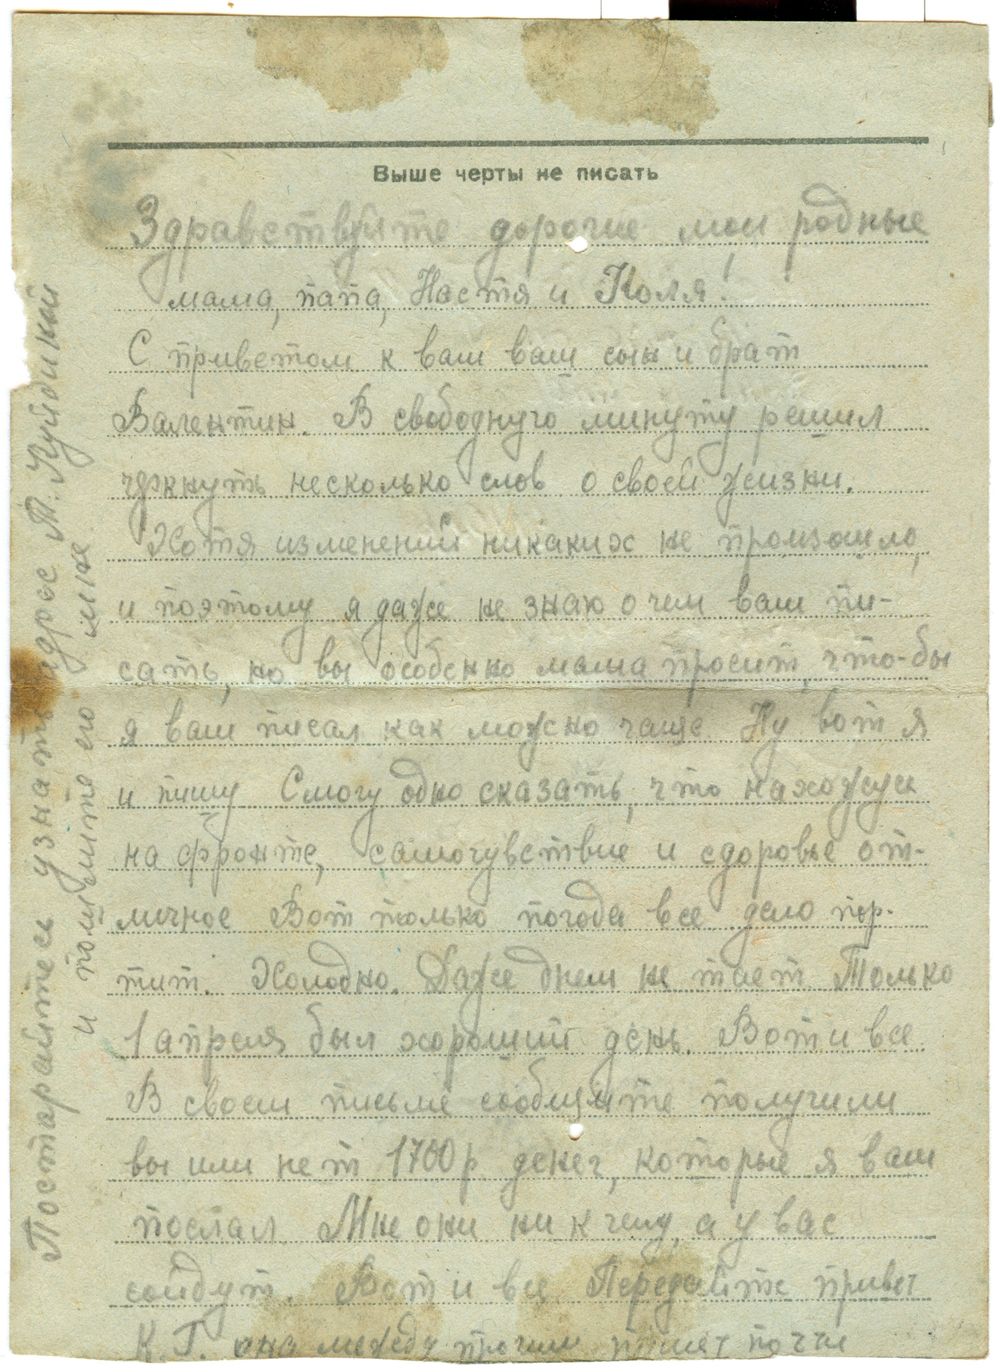 Выше черты не писать
Здравствуйте дорогие мои родные
мама, папа, Настя и Коля!
С приветом к вам ваш сын и брат
Валентин. В свободную минуту решил
черкнуть несколько слов о своей жизни.
Хотя изменений никаких не произошло,
и поэтому я даже не знаю о чем вам пи-
сать, но вы особенно мама просит, что-бы
я вам писал как можно чаще. Ну вот я
и пишу Смогу одно сказать, что нахожусь
на фронте, самочувствие и сдоровье от-
личное Вот только погода все дело пор-
тит. Холодно. Даже днем не тает Только
1 апреля был хороший день. Вот и все
В своем письме сообщите получили
вы или нет 1700 р денег, которые я вам
послал. Мне они ни к чему, а у вас
сойдут. Вот и все Передайте привет
К. Г. она между прочим пишет почти
Постарайтесь узнать адрес Т. Куйбиной
и пошлите его мне